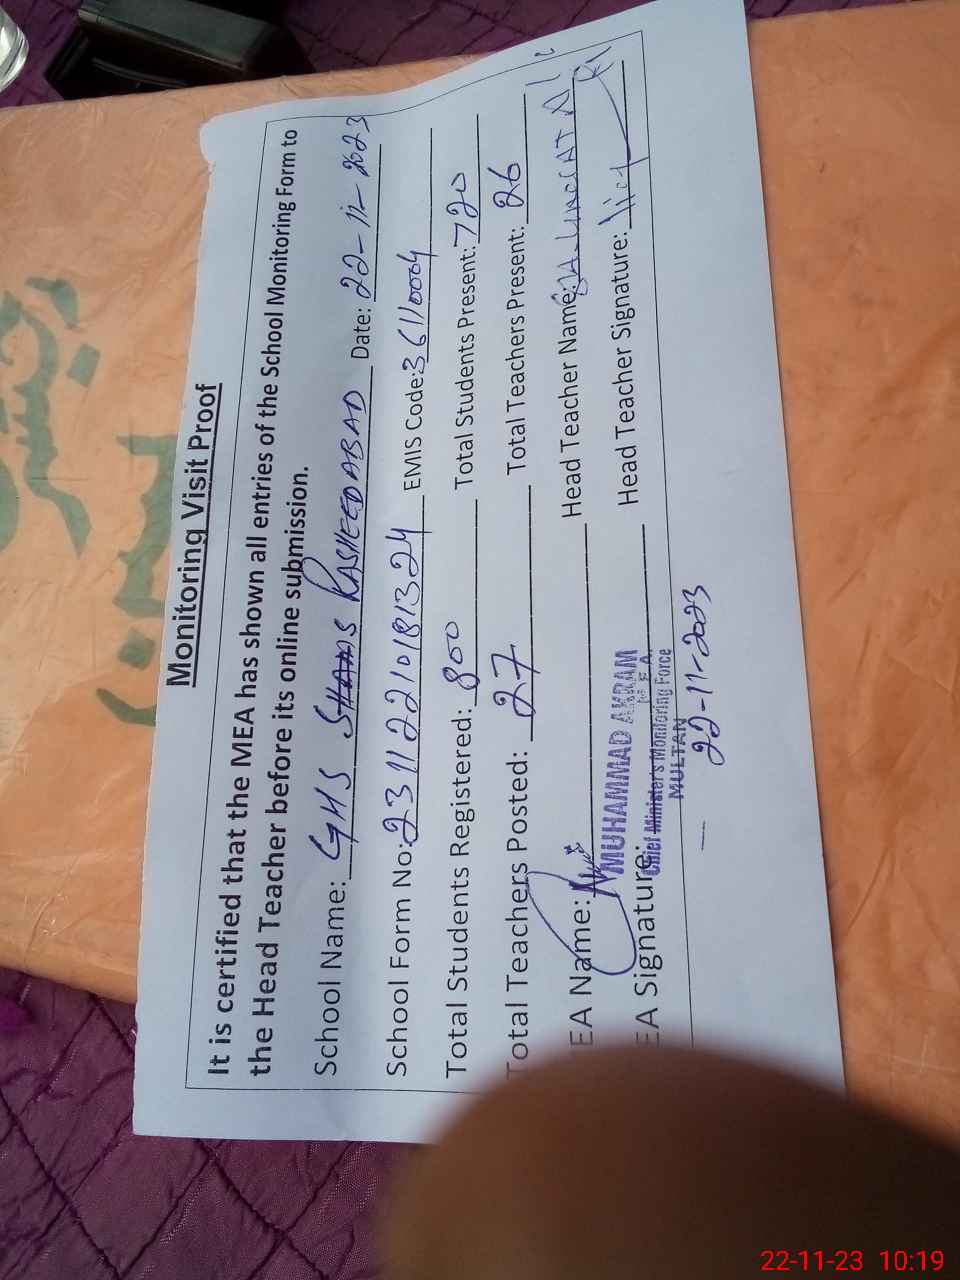 Monitoring Visit Proof
It is certified that the MEA has shown all entries of the School Monitoring Form to
the Head Teacher before its online submission.
School Name: GHS SHAMS RASHEEDABAD Date: 22-11-2023
School Form No: 23112210181324 EMIS Code: 36110004
Total Students Registered: 800 Total Students Present: 720
Total Teachers Posted: 27 Total Teachers Present: 26
EA Name: Head Teacher Name:
MUHAMMAD AKRAM
EA Signature: Head Teacher Signature:
Chief Minister's Monitoring Force
MULTAN
22-11-2023
22-11-23 10:19